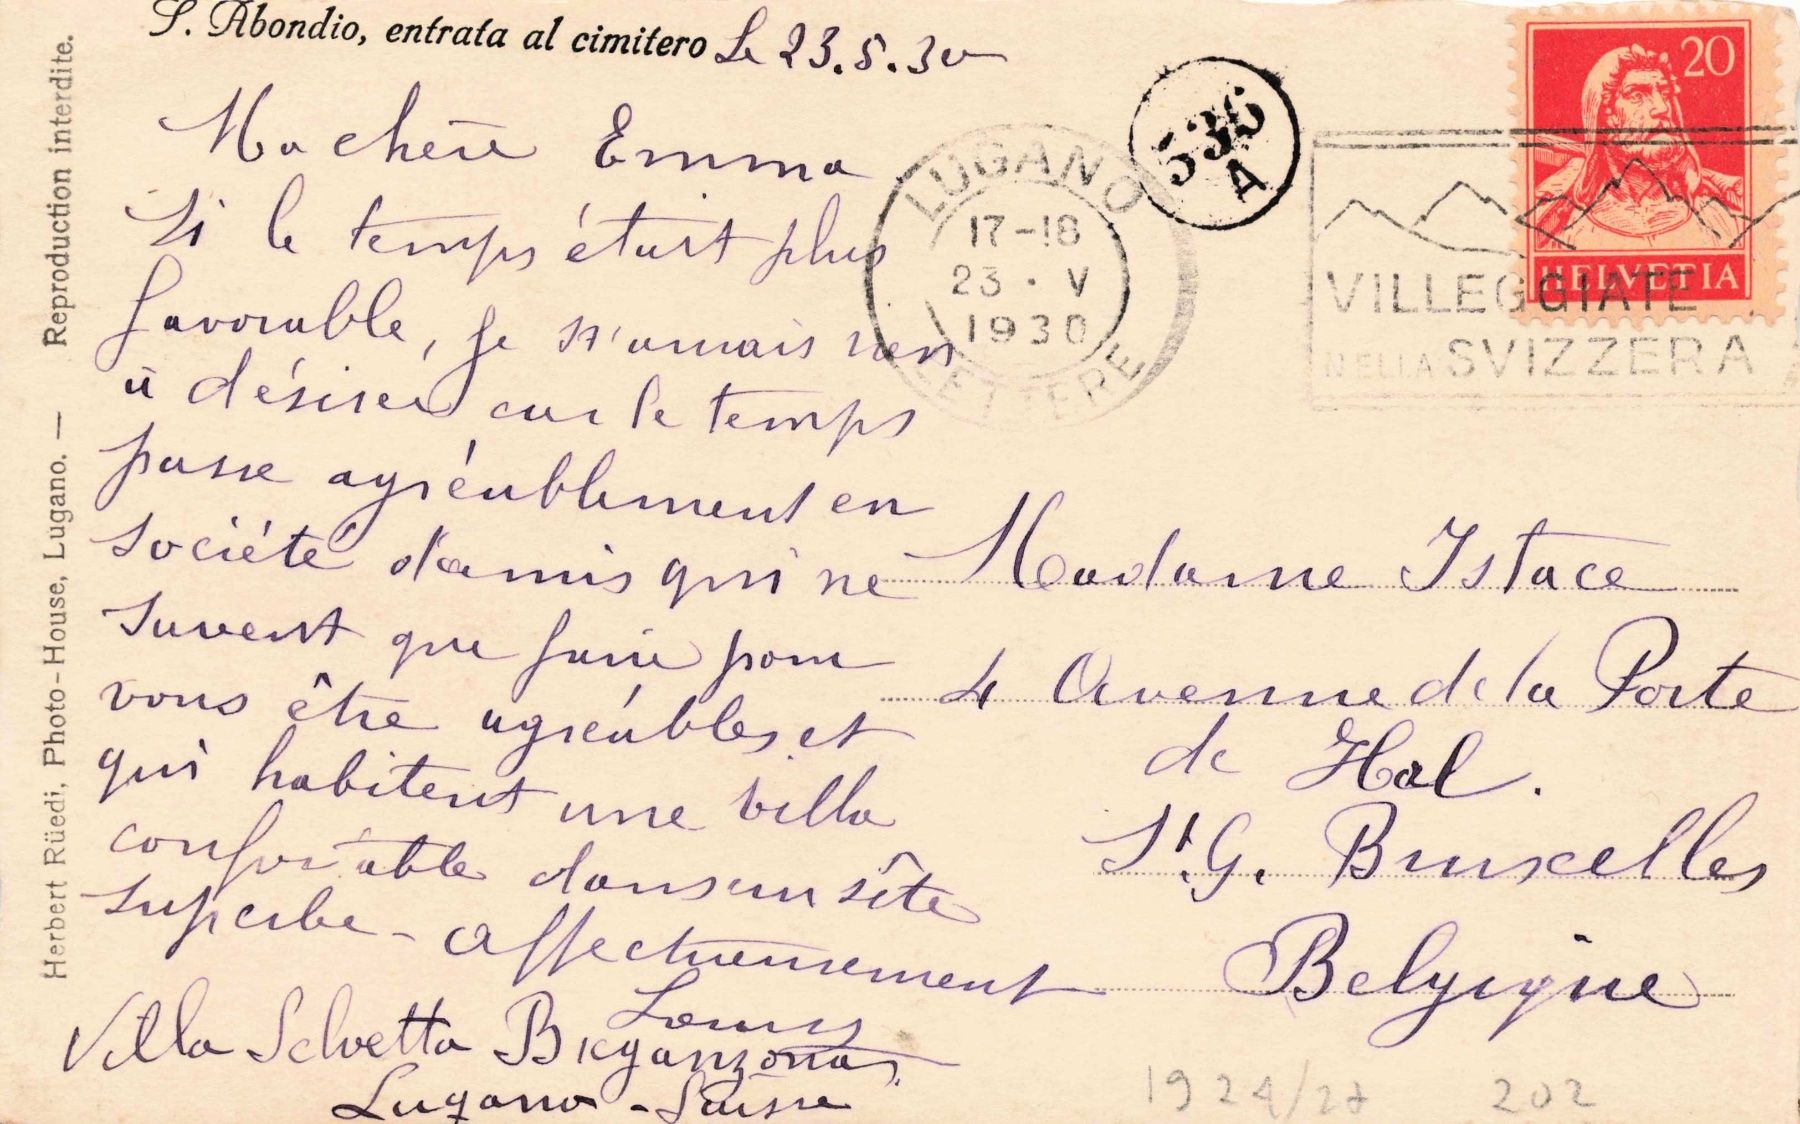 S. Abondio, entrata al cimitero
Le 23.5.30
Ma chère Emma
Si le temps était plus
favorable, je n'aurais rien
à désirer car le temps
passe agréablement en
société d'amis qui ne
savent que faire pour
vous être agréables et
qui habitent une villa
confortable dans un site
superbe - Affectueusement
Louis
Villa Selvetta Breganzona
Lugano - Suisse
Herbert Rüedi, Photo-House, Lugano. — Reproduction interdite.
536
A
LUGANO
17-18
23 · V
1930
LETTERE
20
HELVETIA
VILLEGGIATE
NELLA SVIZZERA
Madame Istace
4 Avenue de la Porte
de Hal.
St. G. Bruxelles
Belgique
1924/27 202